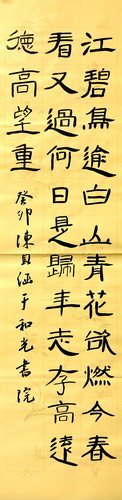 江碧鳥逾白山青花欲燃今春
看又過何日是歸年志存高遠
德高望重
癸卯陳貝涵于和光書院